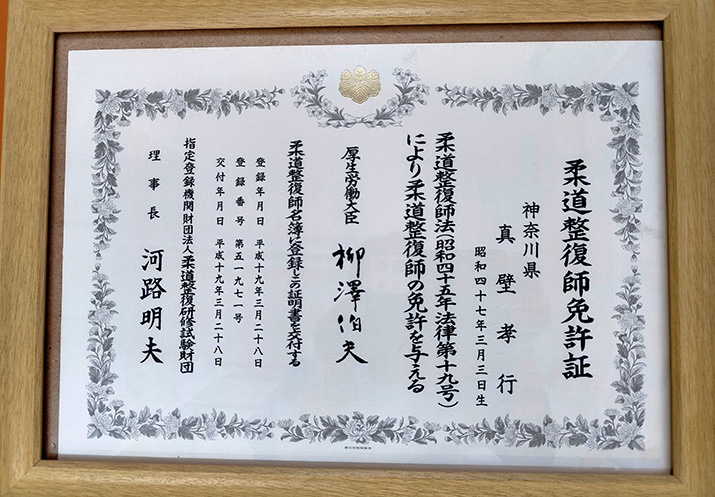 柔道整復師免許証
神奈川県
真壁孝行
昭和四十七年三月三日生
柔道整復師法(昭和四十五年法律第十九号)
により柔道整復師の免許を与える
厚生労働大臣 柳澤伯夫
柔道整復師名簿に登録しこの証明書を交付する
登録年月日 平成十九年三月二十八日
登録番号 第五一九七一号
交付年月日 平成十九年三月二十八日
指定登録機関財団法人柔道整復研修試験財団
理事長 河路明夫